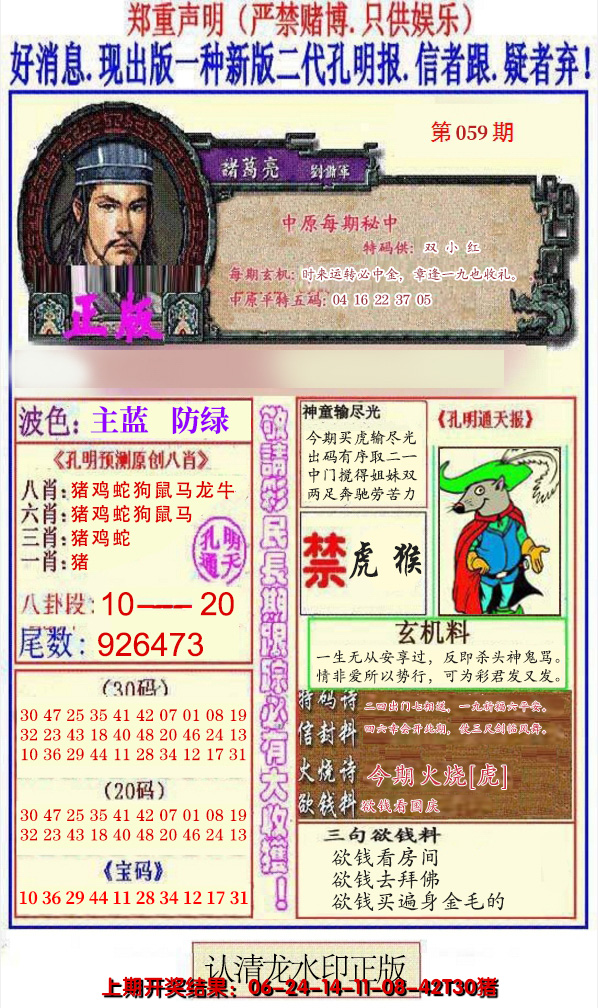 郑重声明（严禁赌博.只供娱乐）
好消息.现出版一种新版二代孔明报.信者跟.疑者弃!
第059期
諸葛亮 劉備軍
中原每期秘中
特码供：双小红
每期玄机：时来运转必中金，章逢一九也收礼。
中原平特五码：04 16 22 37 05
正版
波色：主蓝 防绿
《孔明预测原创八肖》
八肖：猪鸡蛇狗鼠马龙牛
六肖：猪鸡蛇狗鼠马
三肖：猪鸡蛇
一肖：猪
孔明
通天
八卦段：10——20
尾数：926473
(30码)
30 47 25 35 41 42 07 01 08 19
32 23 43 18 40 48 20 46 24 13
10 36 29 44 11 28 34 12 17 31
(20码)
30 47 25 35 41 42 07 01 08 19
32 23 43 18 40 48 20 46 24 13
《宝码》
10 36 29 44 11 28 34 12 17 31
敬請彩民長期跟踪必有大收獲！
神童输尽光
今期买虎输尽光
出码有序取二一
中门搅得姐妹双
两足奔驰劳苦力
《孔明通天报》
禁 虎 猴
玄机料
一生无从安享过，反即杀头神鬼骂。
情非爱所以势行，可为彩君发又发。
特码诗 二四出门七相送，一九祈福六平安。
信封料 四六幸会开北期，使三尺剑临风舞。
火烧诗 今期火烧[虎]
欲钱料 欲钱看国庆
三句欲钱料
欲钱看房间
欲钱去拜佛
欲钱买遍身金毛的
认清龙水印正版
上期开奖结果：06-24-14-11-08-42T30猪